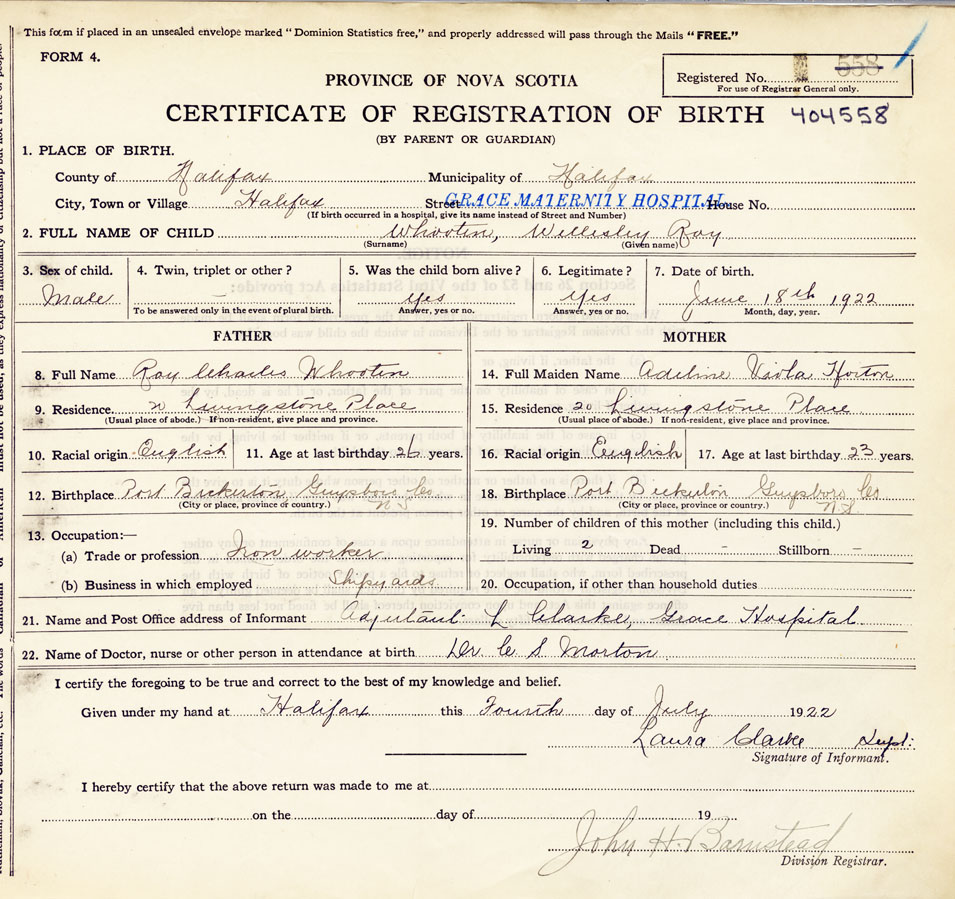 This form if placed in an unsealed envelope marked "Dominion Statistics free," and properly addressed will pass through the Mails "FREE."
FORM 4.
Registered No. 558
For use of Registrar General only.
PROVINCE OF NOVA SCOTIA
CERTIFICATE OF REGISTRATION OF BIRTH 404558
(BY PARENT OR GUARDIAN)
1. PLACE OF BIRTH.
County of Halifax Municipality of Halifax
City, Town or Village Halifax Street GRACE MATERNITY HOSPITAL House No.
(If birth occurred in a hospital, give its name instead of Street and Number)
2. FULL NAME OF CHILD Whooten, Wellesley Roy
(Surname) (Given name)
3. Sex of child. 4. Twin, triplet or other? 5. Was the child born alive? 6. Legitimate? 7. Date of birth.
Male — Yes Yes June 18th 1922
To be answered only in the event of plural birth. Answer, yes or no. Answer, yes or no. Month, day, year.
FATHER
8. Full Name Roy Charles Whooten
9. Residence 20 Livingstone Place
(Usual place of abode.) If non-resident, give place and province.
10. Racial origin English 11. Age at last birthday 26 years.
12. Birthplace Port Bickerton, Guysboro Co
(City or place, province or country.) N S
13. Occupation:—
(a) Trade or profession Iron worker
(b) Business in which employed Shipyards
MOTHER
14. Full Maiden Name Adeline Viola Horton
15. Residence 20 Livingstone Place
(Usual place of abode.) If non-resident, give place and province.
16. Racial origin English 17. Age at last birthday 23 years.
18. Birthplace Port Bickerton Guysboro Co
(City or place, province or country.) N.S.
19. Number of children of this mother (including this child.)
Living 2 Dead – Stillborn –
20. Occupation, if other than household duties
21. Name and Post Office address of Informant Adjutant L Clarke, Grace Hospital
22. Name of Doctor, nurse or other person in attendance at birth Dr C S Morton
I certify the foregoing to be true and correct to the best of my knowledge and belief.
Given under my hand at Halifax this Fourth day of July 1922
Laura Clarke Supt.
Signature of Informant.
I hereby certify that the above return was made to me at
on the day of 19
John H. Barnstead
Division Registrar.